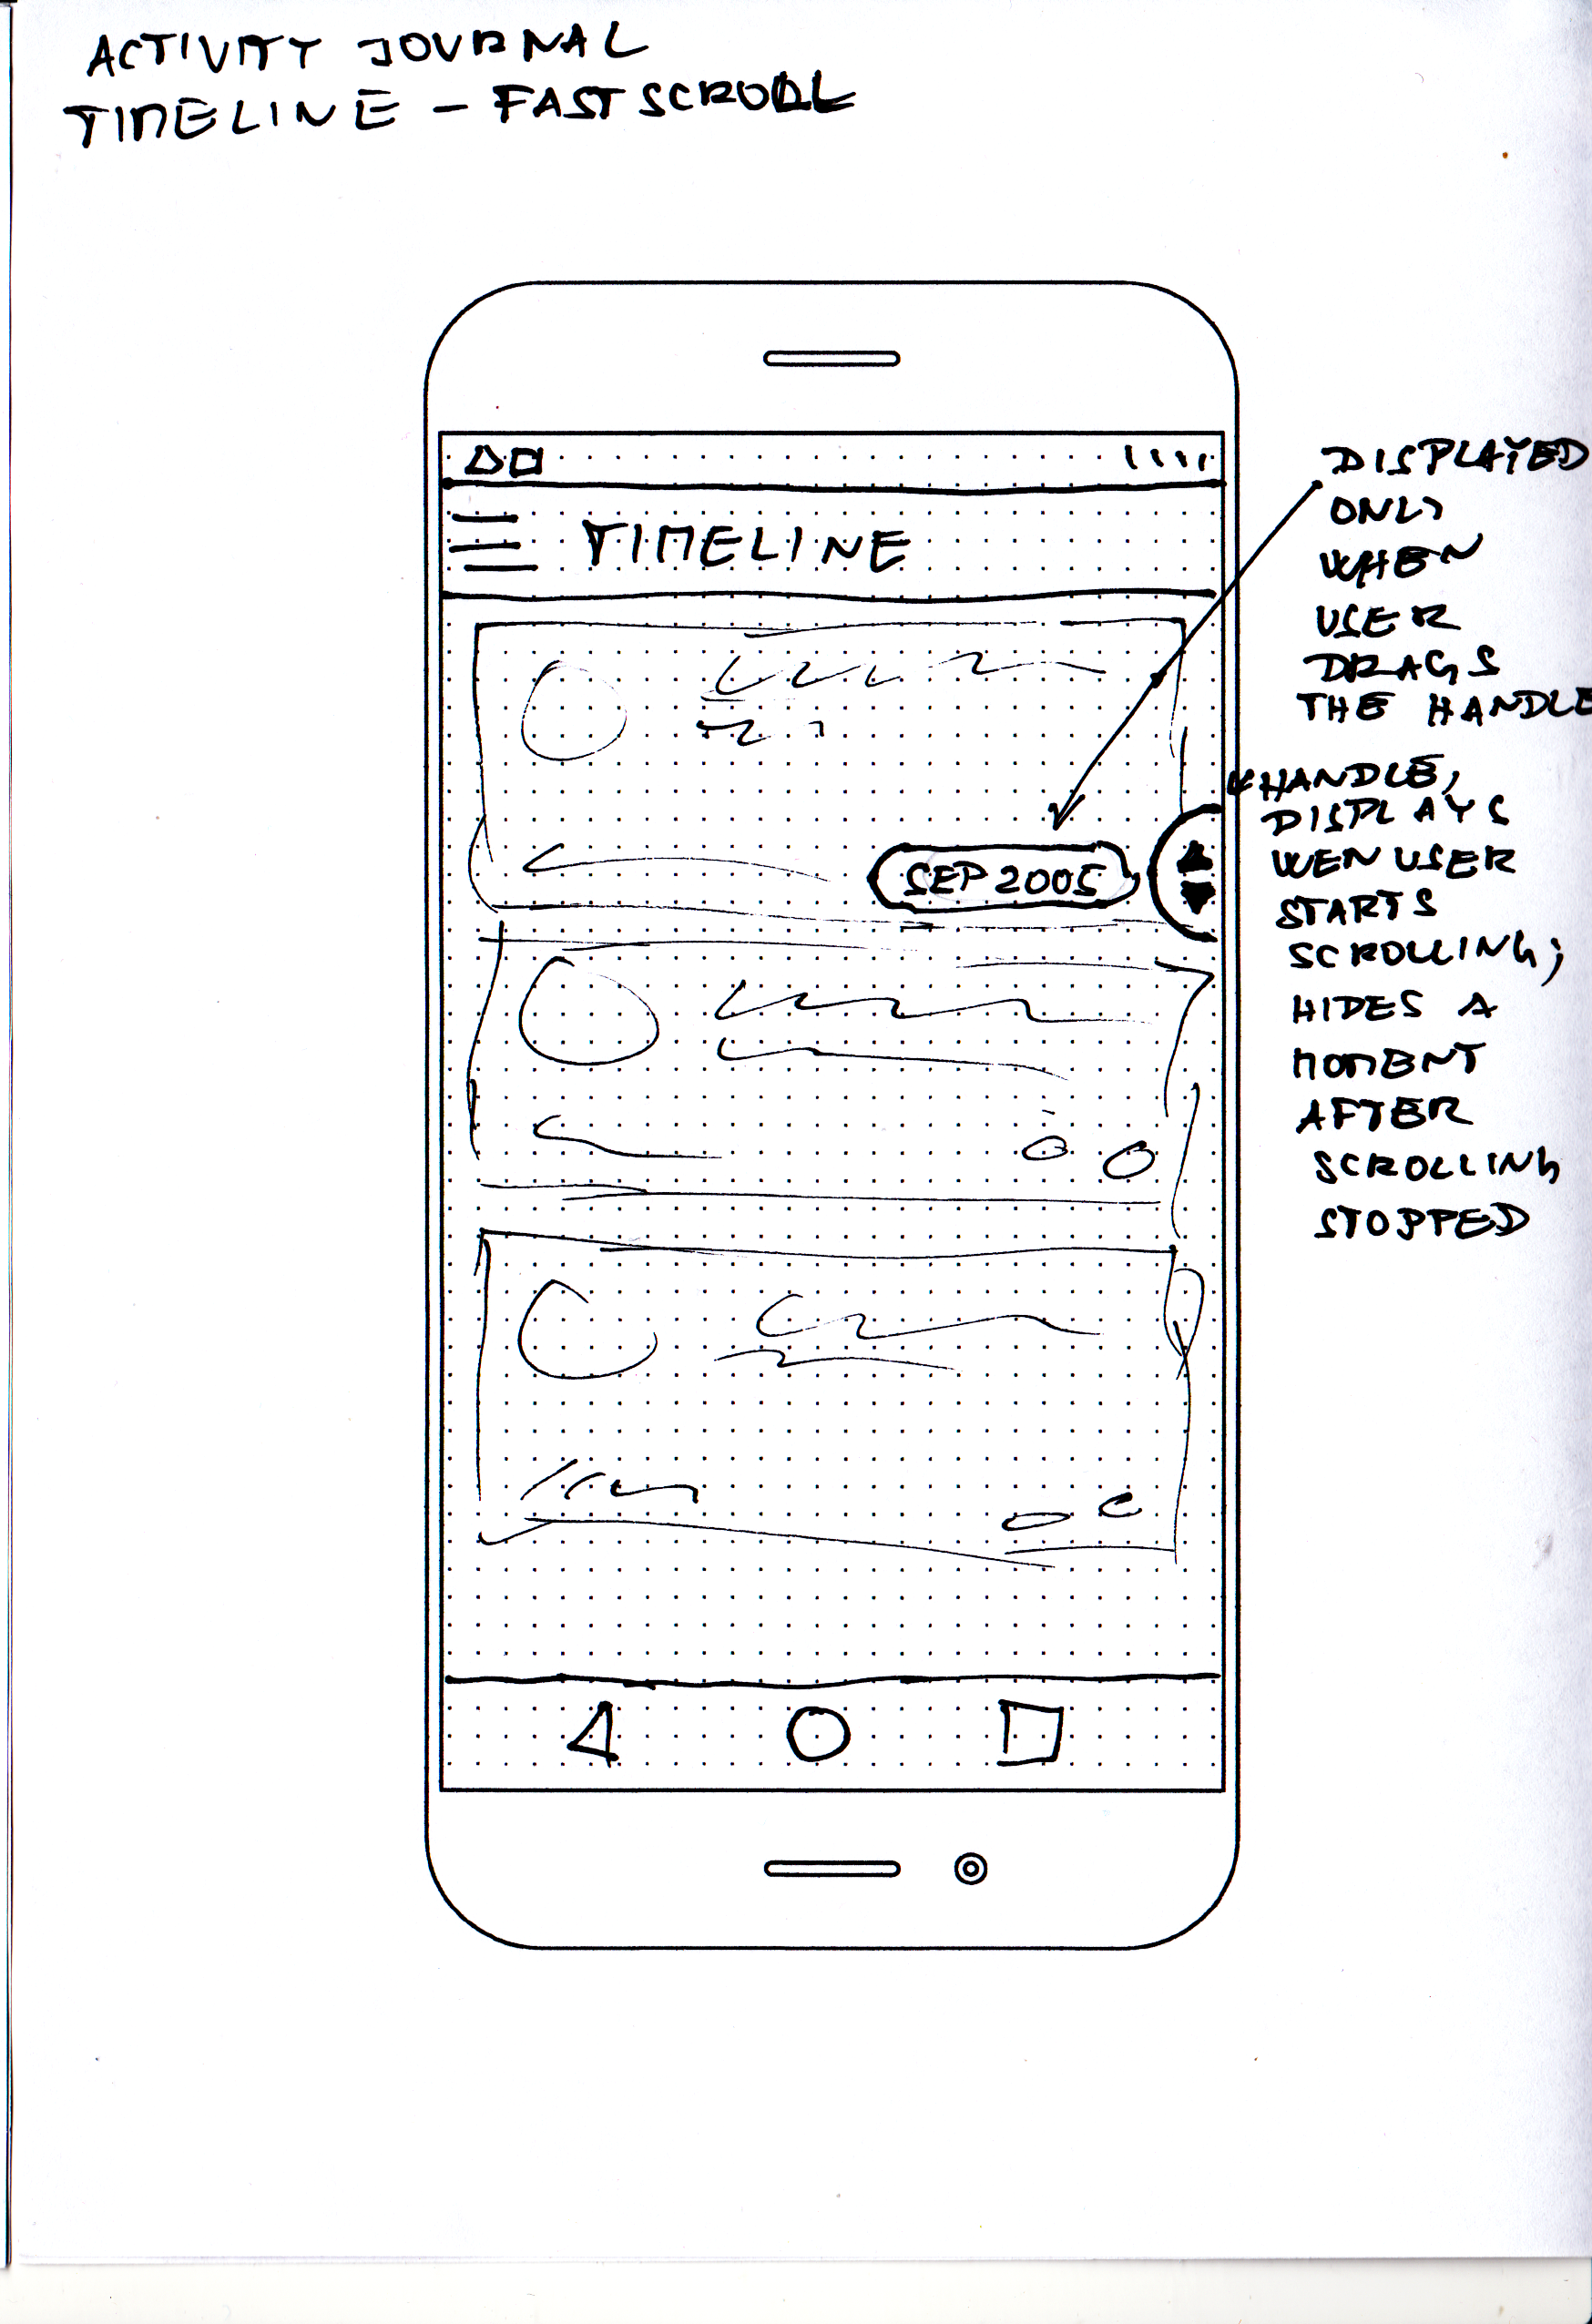 ACTIVITY JOURNAL
TIMELINE - FAST SCROLL
TIMELINE
SEP 2005
DISPLAYED
ONLY
WHEN
USER
DRAGS
THE HANDLE
HANDLE,
DISPLAYS
WEN USER
STARTS
SCROLLING;
HIDES A
MOMENT
AFTER
SCROLLING
STOPPED